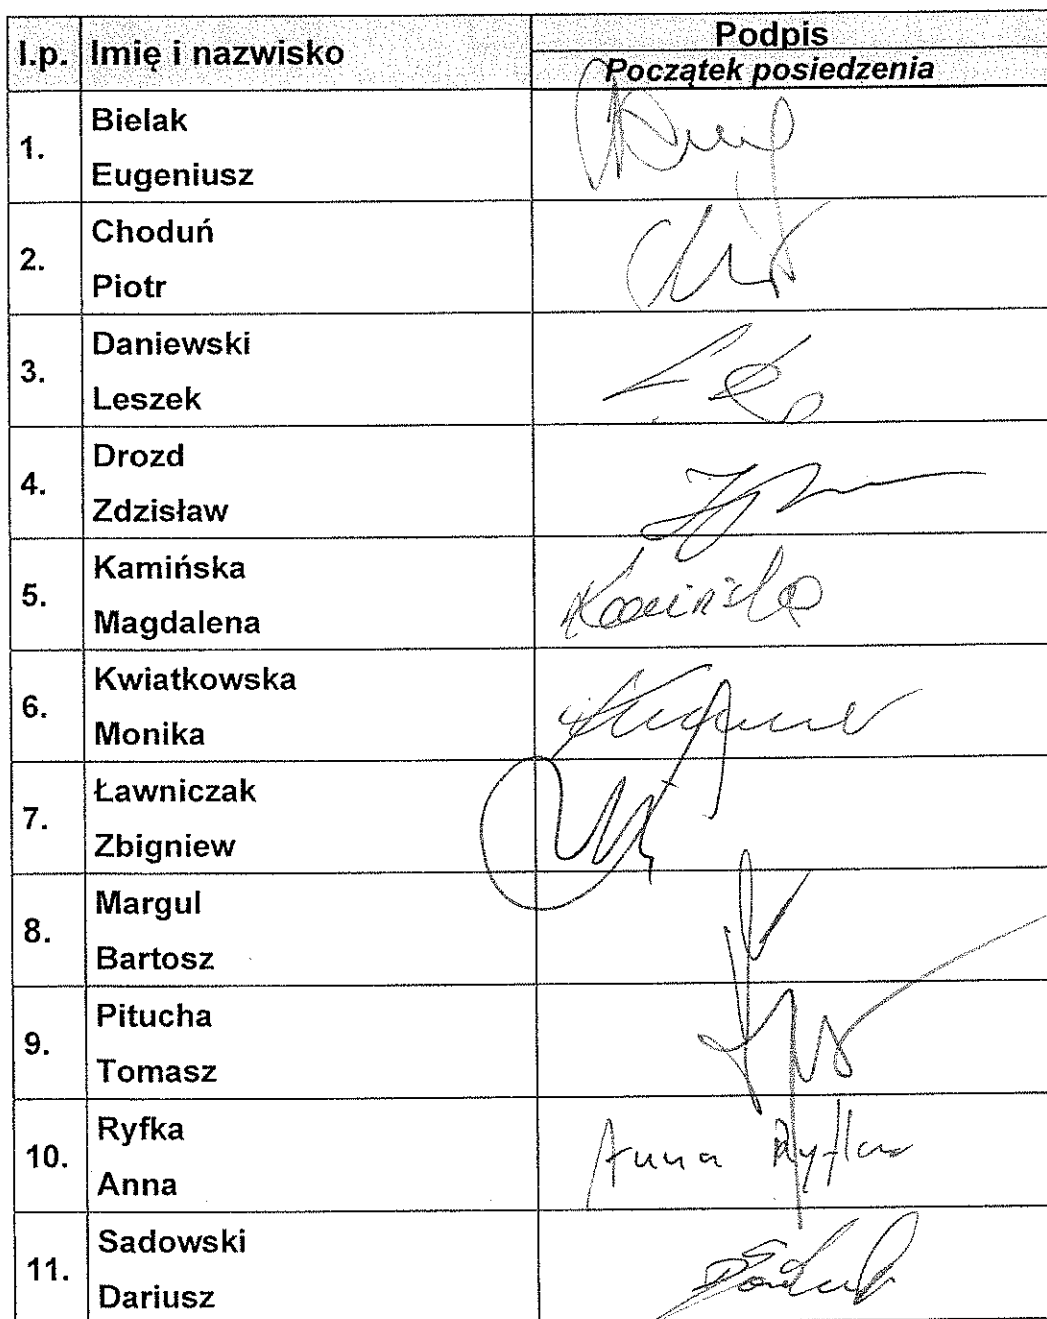 l.p. Imię i nazwisko Podpis
Początek posiedzenia
1. Bielak
Eugeniusz
2. Choduń
Piotr
3. Daniewski
Leszek
4. Drozd
Zdzisław
5. Kamińska
Magdalena
Kamińska
6. Kwiatkowska
Monika
7. Ławniczak
Zbigniew
8. Margul
Bartosz
9. Pitucha
Tomasz
10. Ryfka
Anna
Anna Ryfka
11. Sadowski
Dariusz